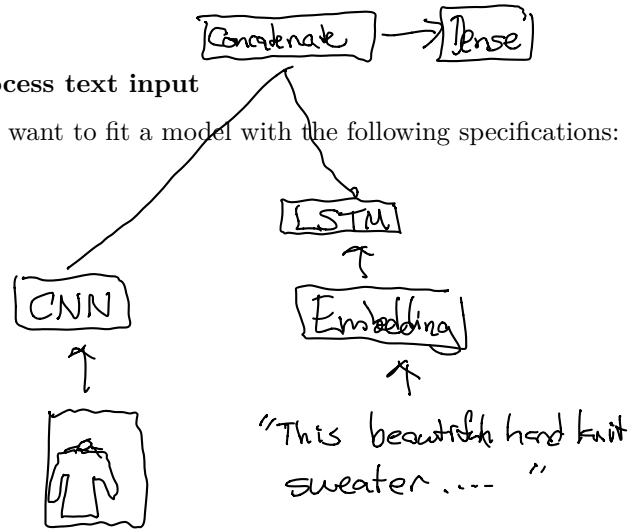 Concatenate
Dense
cess text input
want to fit a model with the following specifications:
LSTM
CNN
Embedding
"This hand knit
sweater.... "